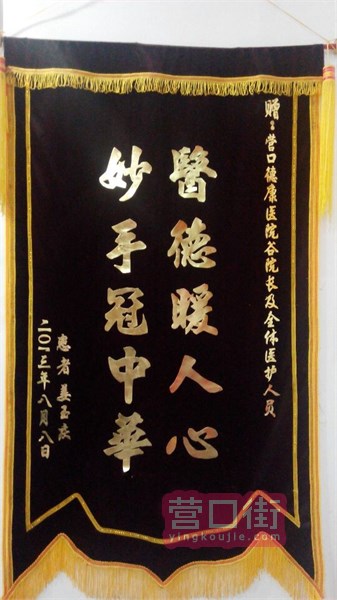 赠：营口德康医院谷院长及全体医护人员
醫德暖人心
妙手冠中華
患者 姜玉杰
二〇一三年八月八日
营口街
yingkoujie.com